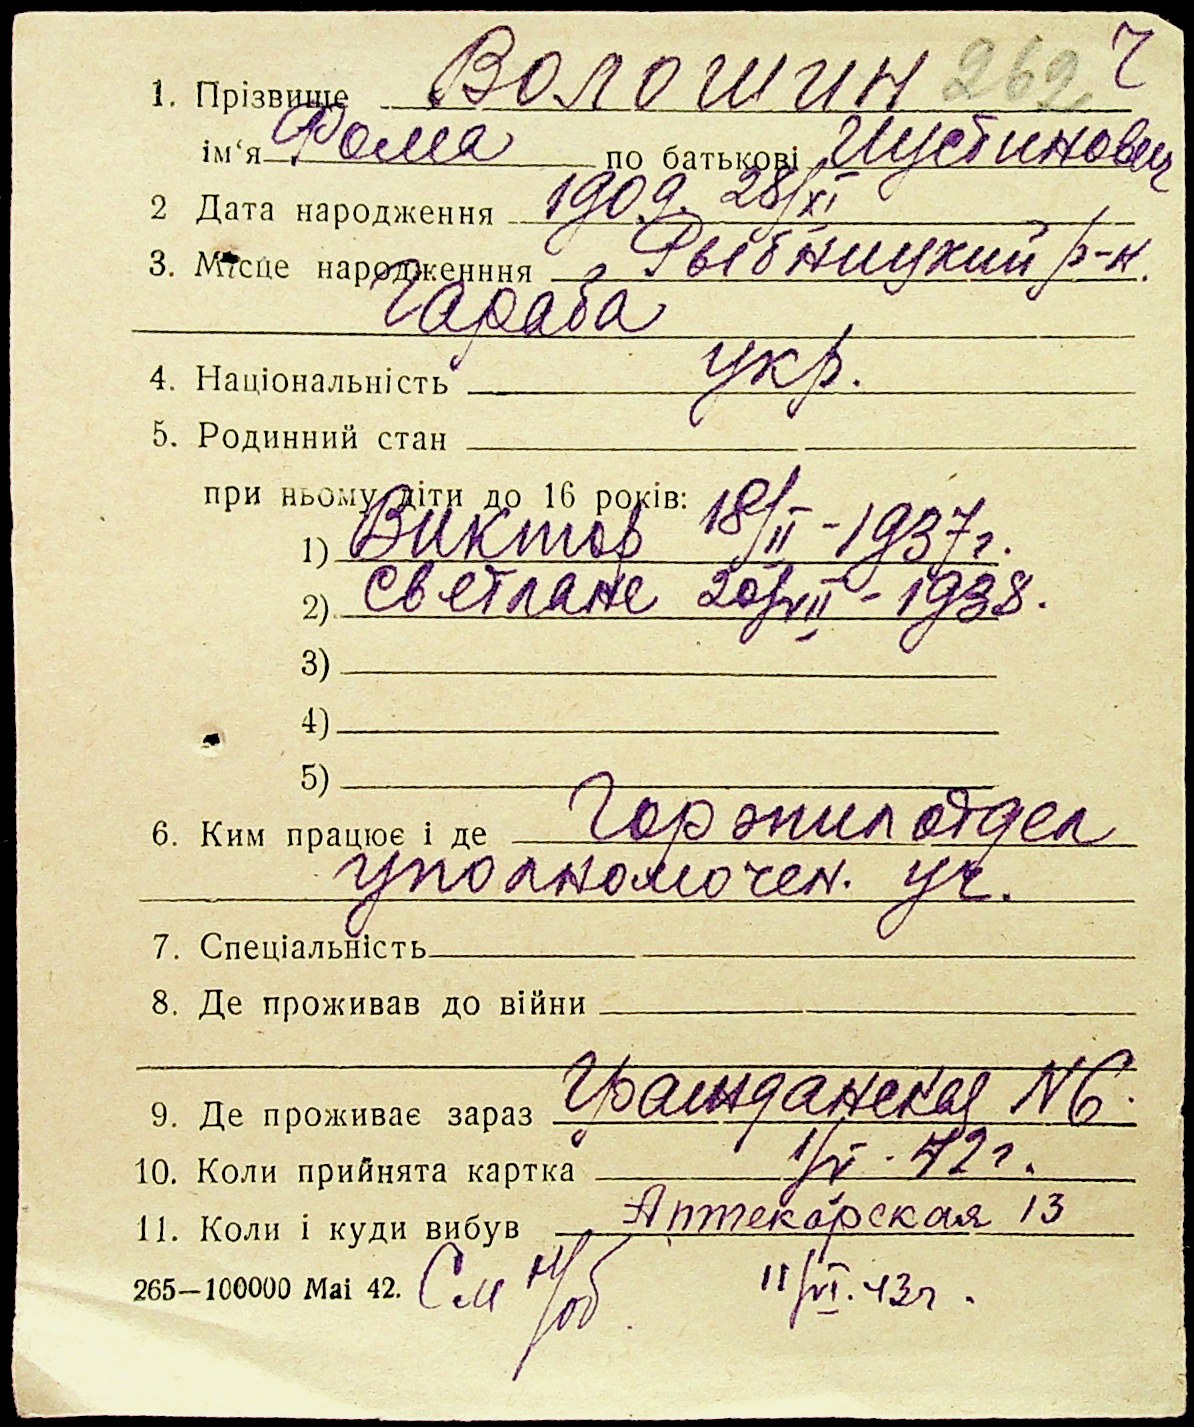 1. Прізвище Волошин 262 Ч
ім‘я Фома по батькові Иустинович
2 Дата народження 1909. 28/XI
3. Місце народженння Рыбницкий р-н.
Гараба
4. Національність укр.
5. Родинний стан
при ньому діти до 16 років:
1) Виктор 18/II - 1937 г.
2) Светлане 20/VII - 1938.
3)
4)
5)
6. Ким працює і де Горжилотдел
уполномочен. уч.
7. Спеціальність
8. Де проживав до війни
9. Де проживає зараз Гражданская N 6.
10. Коли прийнята картка 1/V. 42 г.
11. Коли і куди вибув Аптекарская 13
265—100000 Маі 42. См н/об 11/VI. 43 г.